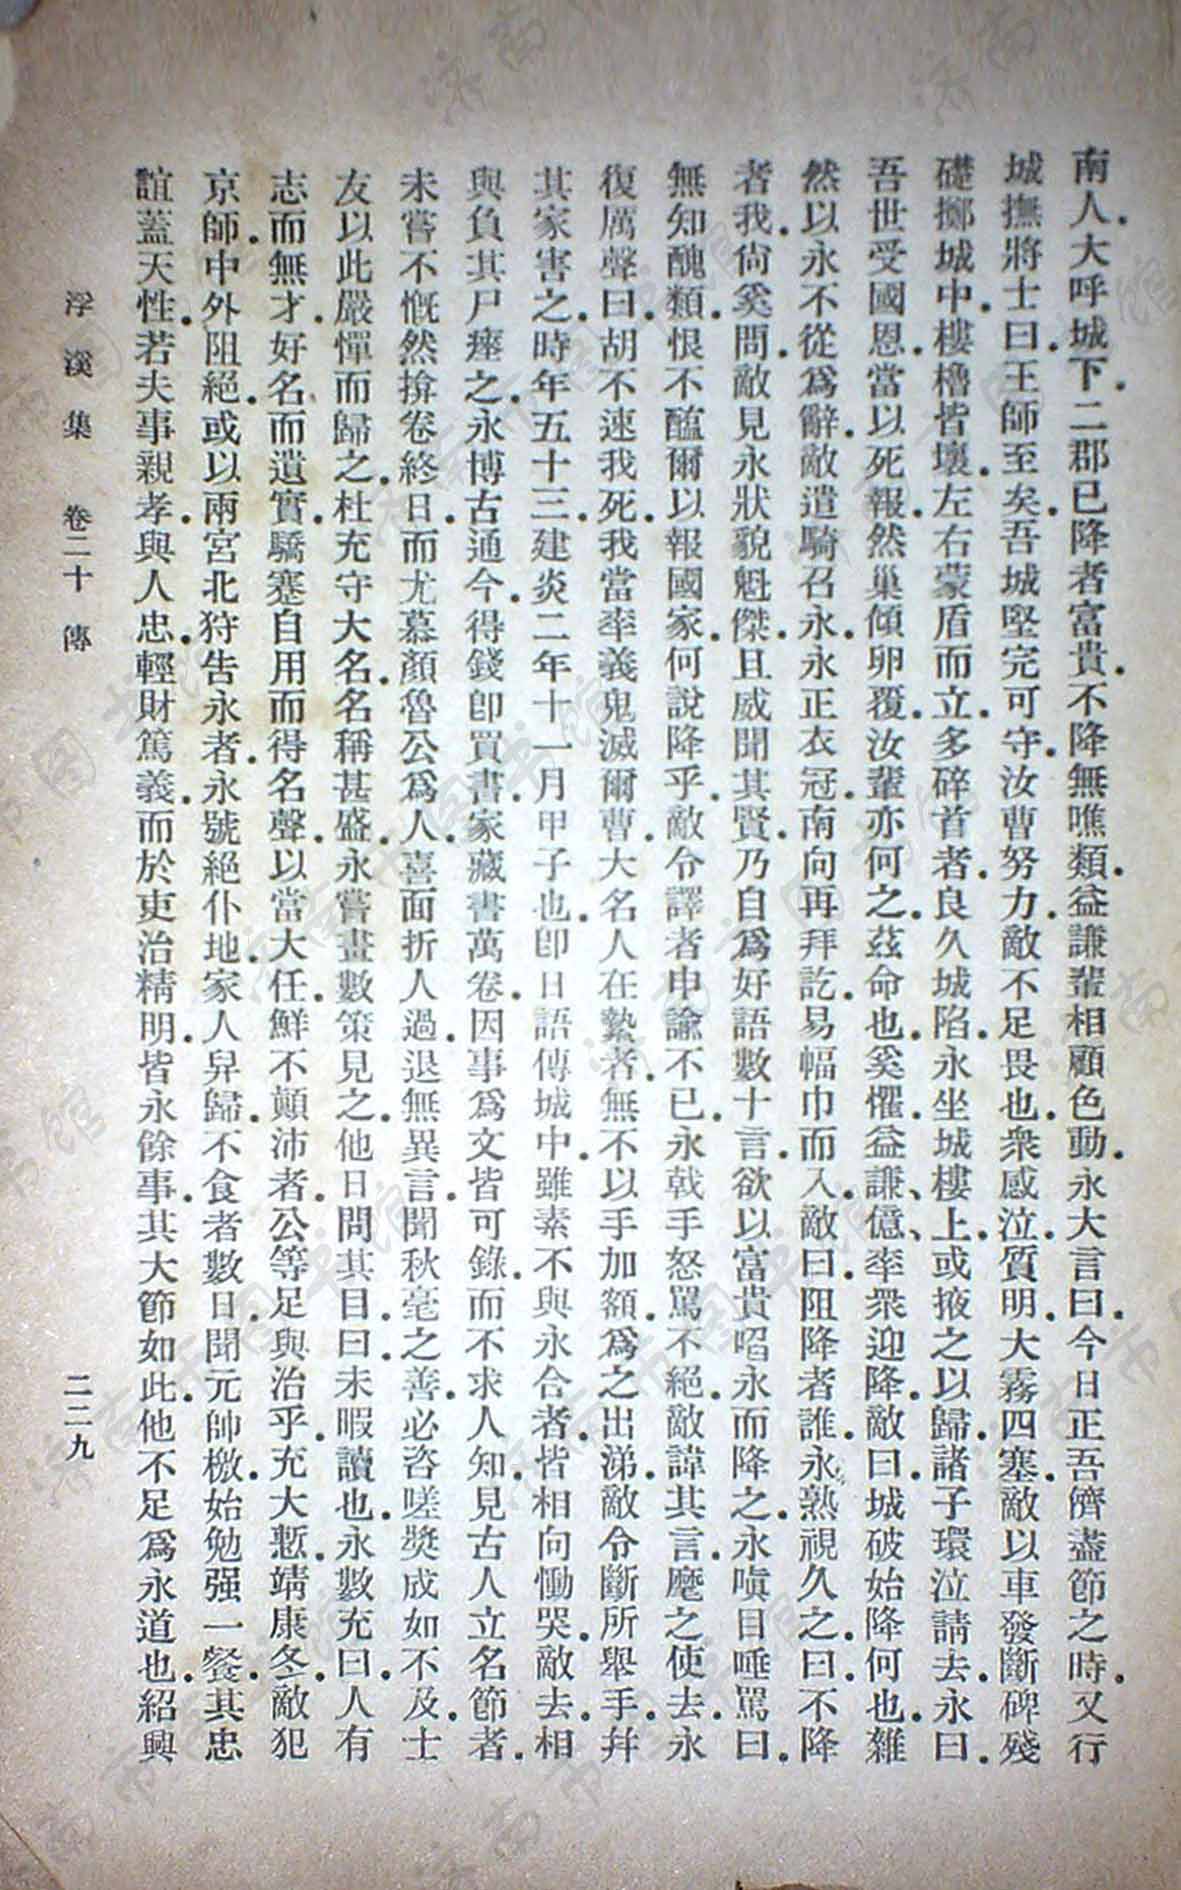 南人大呼城下二郡已降者富貴不降無噍類益謙輩相顧色動永大言曰今日正吾儕盡節之時又行
城撫將士曰王師至矣吾城堅完可守汝曹努力敵不足畏也衆感泣質明大霧四塞敵以車發斷碑殘
礎擲城中樓櫓皆壞左右蒙盾而立多碎首者良久城陷永坐城樓上或掖之以歸諸子環泣請去永曰
吾世受國恩當以死報然巢傾卵覆汝輩亦何之茲命也奚懼益謙億率衆迎降敵曰城破始降何也雜
然以永不從爲辭敵遣騎召永永正衣冠南向再拜訖易幅巾而入敵曰阻降者誰永熟視久之曰不降
者我尙奚問敵見永狀貌魁傑且威聞其賢乃自爲好語數十言欲以富貴啗永而降之永嗔目唾罵曰
無知醜類恨不醢爾以報國家何說降乎敵令譯者申諭不已永戟手怒罵不絕敵諱其言麾之使去永
復厲聲曰胡不速我死我當率義鬼滅爾曹大名人在縶者無不以手加額爲之出涕敵令斷所舉手幷
其家害之時年五十三建炎二年十一月甲子也卽日語傳城中雖素不與永合者皆相向慟哭敵去相
與負其尸瘞之永博古通今得錢卽買書家藏書萬卷因事爲文皆可錄而不求人知見古人立名節者
未嘗不慨然揜卷終日而尤慕顏魯公爲人喜面折人過退無異言聞秋毫之善必咨嗟獎成如不及士
友以此嚴憚而歸之杜充守大名名稱甚盛永嘗畫數策見之他日問其目曰未暇讀也永數充曰人有
志而無才好名而遺實驕蹇自用而得名聲以當大任鮮不顛沛者公等足與治乎充大慙靖康冬敵犯
京師中外阻絕或以兩宮北狩告永者永號絕仆地家人舁歸不食者數日聞元帥檄始勉强一餐其忠
誼蓋天性若夫事親孝與人忠輕財篤義而於吏治精明皆永餘事其大節如此他不足爲永道也紹興
浮溪集　卷二十　傳　二二九